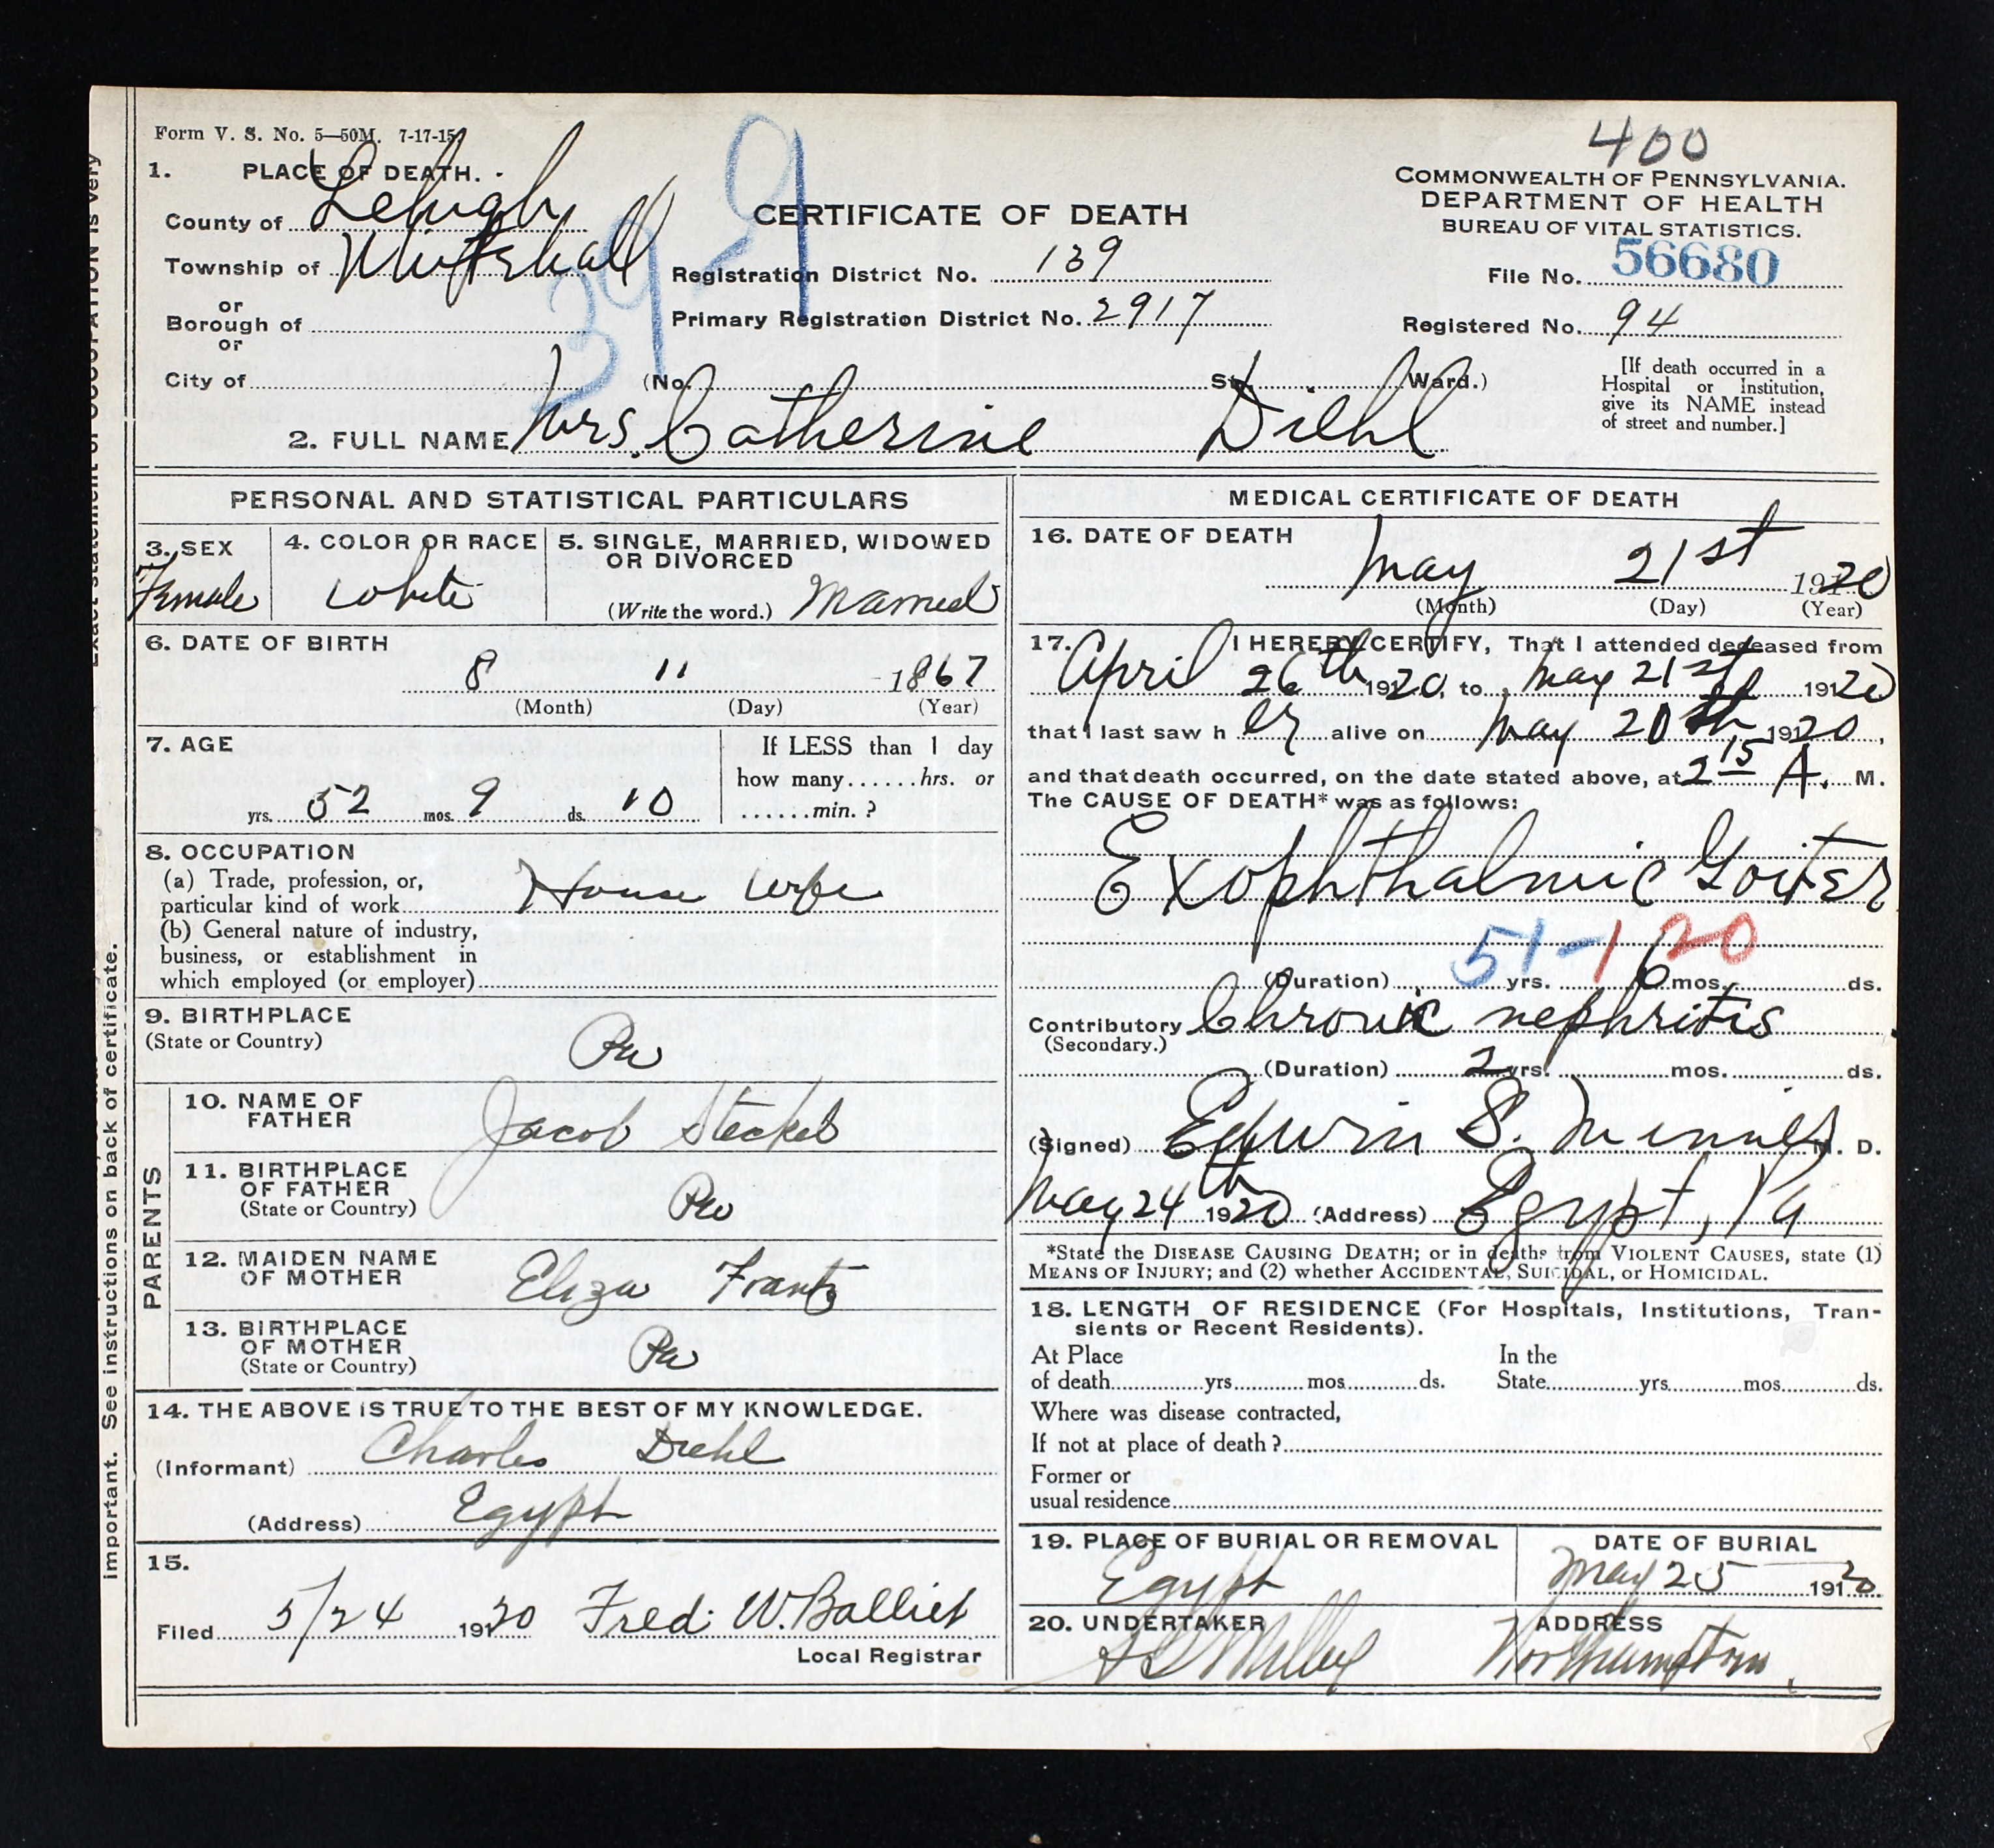 400
Form V. S. No. 5—50M. 7-17-15.
1. PLACE OF DEATH.
County of Lehigh
Township of Whitehall
or
Borough of
or
City of (No. St. Ward.)
39 9
CERTIFICATE OF DEATH
Registration District No. 139
Primary Registration District No. 2917
COMMONWEALTH OF PENNSYLVANIA.
DEPARTMENT OF HEALTH
BUREAU OF VITAL STATISTICS.
File No. 56680
Registered No. 94
[If death occurred in a
Hospital or Institution,
give its NAME instead
of street and number.]
2. FULL NAME Mrs. Catherine Diehl
PERSONAL AND STATISTICAL PARTICULARS
3. SEX
Female
4. COLOR OR RACE
White
5. SINGLE, MARRIED, WIDOWED
OR DIVORCED
(Write the word.) Married
6. DATE OF BIRTH
8 11 1867
(Month) (Day) (Year)
7. AGE
yrs. 52 mos. 9 ds. 10
If LESS than 1 day
how many......hrs. or
......min.?
8. OCCUPATION
(a) Trade, profession, or,
particular kind of work House wife
(b) General nature of industry,
business, or establishment in
which employed (or employer)
9. BIRTHPLACE
(State or Country) Pa
PARENTS
10. NAME OF
FATHER Jacob Steckel
11. BIRTHPLACE
OF FATHER
(State or Country) Pa
12. MAIDEN NAME
OF MOTHER Eliza Frantz
13. BIRTHPLACE
OF MOTHER
(State or Country) Pa
14. THE ABOVE IS TRUE TO THE BEST OF MY KNOWLEDGE.
(Informant) Charles Diehl
(Address) Egypt
15.
Filed 5/24 1920 Fred. W. Balliet
Local Registrar
MEDICAL CERTIFICATE OF DEATH
16. DATE OF DEATH
May 21st 1920
(Month) (Day) (Year)
17. I HEREBY CERTIFY, That I attended deceased from
April 26th 1920, to May 21st 1920
that I last saw h er alive on May 20th 1920,
and that death occurred, on the date stated above, at 2 15 A. M.
The CAUSE OF DEATH* was as follows:
Exophthalmic Goiter
51-1 20
(Duration) yrs. 6 mos. ds.
Contributory Chronic nephritis
(Secondary.)
(Duration) 2 yrs. mos. ds.
(Signed) Edwin S. M. D.
May 24th 1920 (Address) Egypt, Pa
*State the DISEASE CAUSING DEATH; or in deaths from VIOLENT CAUSES, state (1)
MEANS OF INJURY; and (2) whether ACCIDENTAL, SUICIDAL, or HOMICIDAL.
18. LENGTH OF RESIDENCE (For Hospitals, Institutions, Tran-
sients or Recent Residents).
At Place In the
of death yrs. mos. ds. State yrs. mos. ds.
Where was disease contracted,
If not at place of death?
Former or
usual residence
19. PLACE OF BURIAL OR REMOVAL
Egypt
DATE OF BURIAL
May 25 1920
20. UNDERTAKER
ADDRESS
Northampton
important. See instructions on back of certificate.